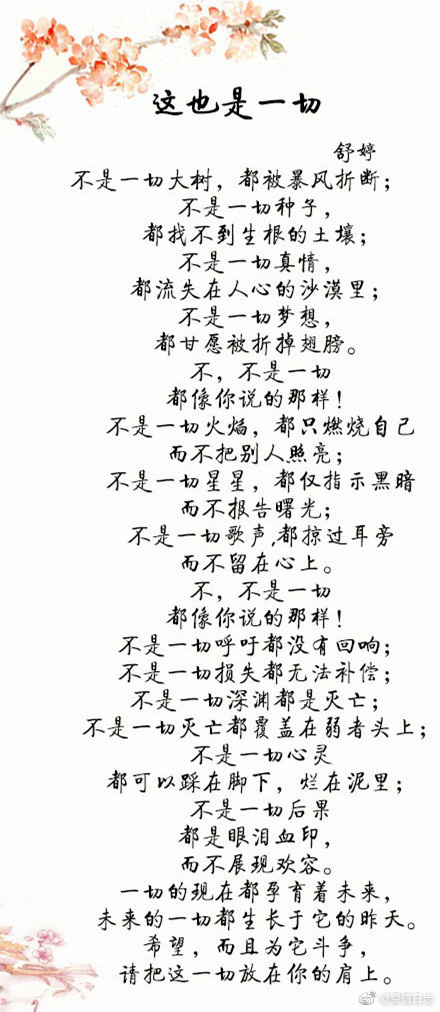 这也是一切
舒婷
不是一切大树，都被暴风折断；
不是一切种子，
都找不到生根的土壤；
不是一切真情，
都流失在人心的沙漠里；
不是一切梦想，
都甘愿被折掉翅膀。
不，不是一切
都像你说的那样！
不是一切火焰，都只燃烧自己
而不把别人照亮；
不是一切星星，都仅指示黑暗
而不报告曙光；
不是一切歌声,都掠过耳旁
而不留在心上。
不，不是一切
都像你说的那样！
不是一切呼吁都没有回响；
不是一切损失都无法补偿；
不是一切深渊都是灭亡；
不是一切灭亡都覆盖在弱者头上；
不是一切心灵
都可以踩在脚下，烂在泥里；
不是一切后果
都是眼泪血印，
而不展现欢容。
一切的现在都孕育着未来，
未来的一切都生长于它的昨天。
希望，而且为它斗争，
请把这一切放在你的肩上。